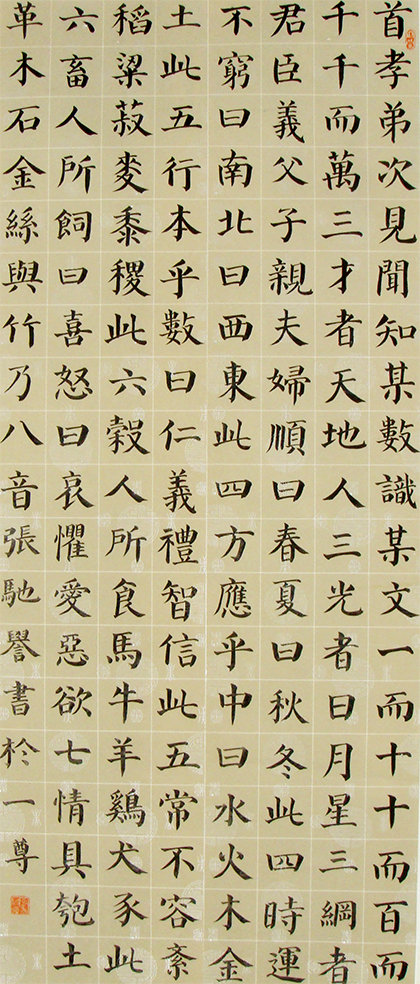 首孝弟次見聞知某數識某文一而十十而百而
千千而萬三才者天地人三光者日月星三綱者
君臣義父子親夫婦順曰春夏曰秋冬此四時運
不窮曰南北曰西東此四方應乎中曰水火木金
土此五行本乎數曰仁義禮智信此五常不容紊
稻粱菽麥黍稷此六穀人所食馬牛羊鷄犬豕此
六畜人所飼曰喜怒曰哀懼愛惡欲七情具匏土
革木石金絲與竹乃八音張馳譽書於一尊